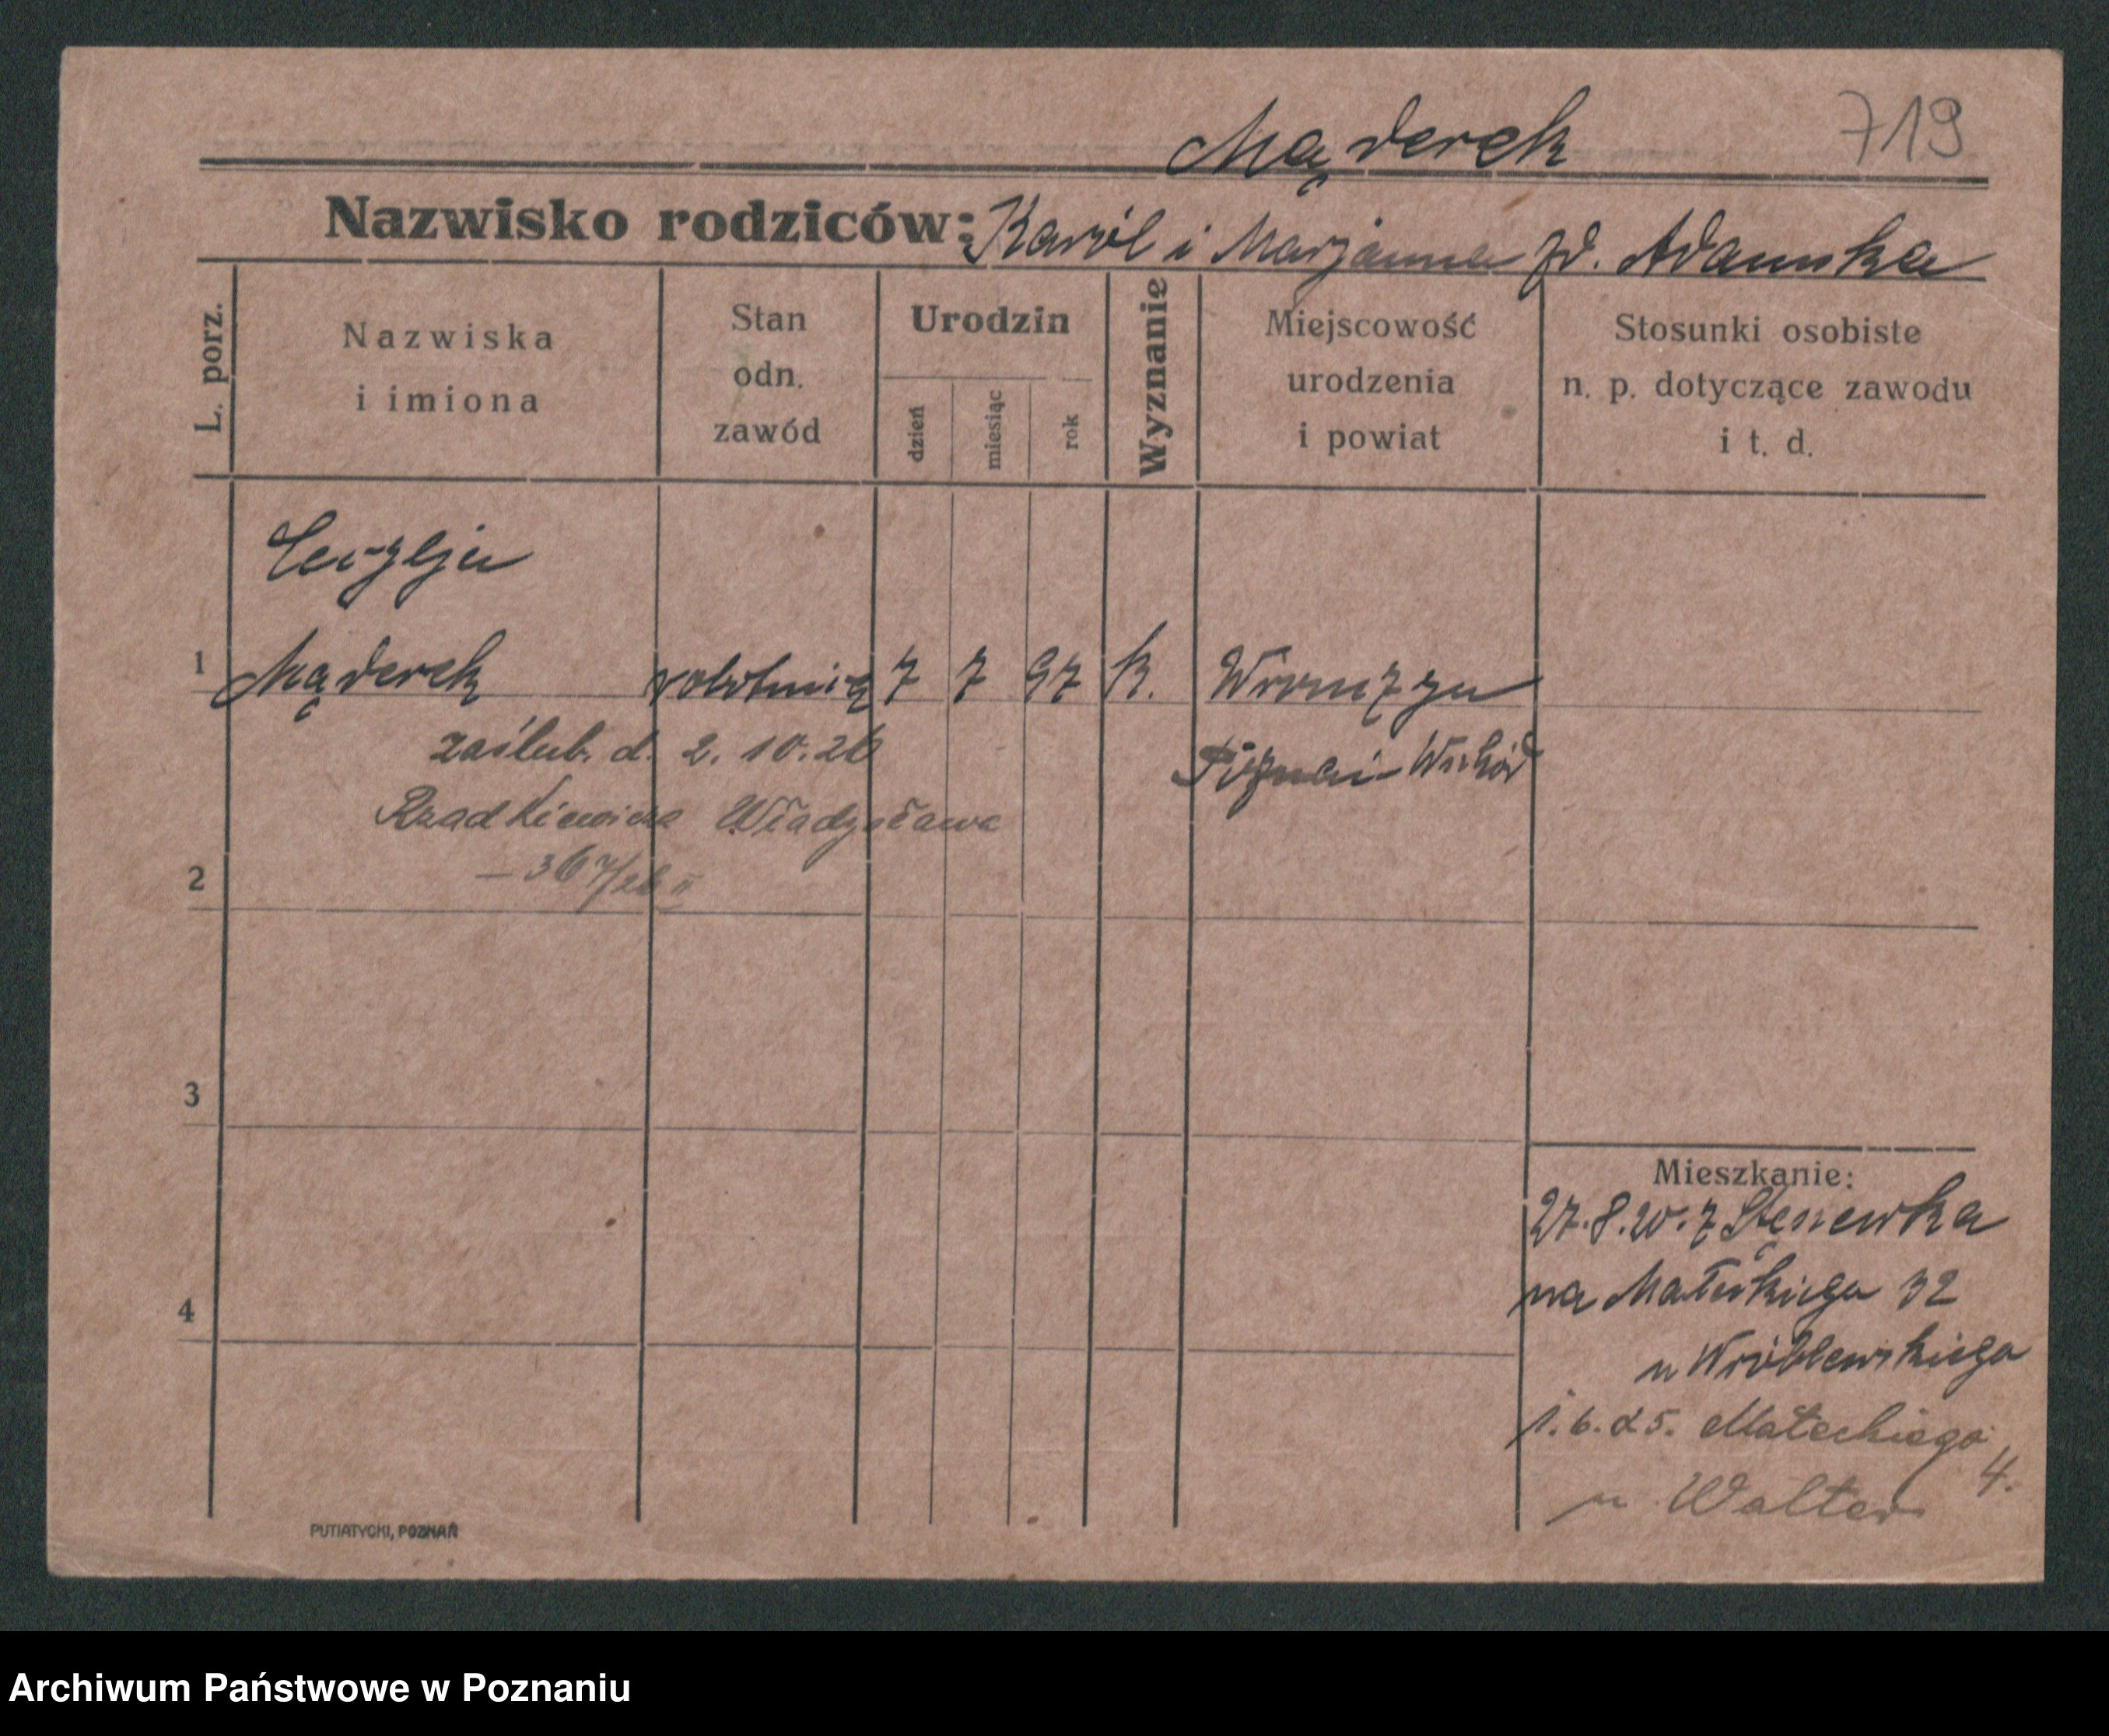 Mąderek 719
Nazwisko rodziców: Karol i Marjanna zd. Adamska
L. porz.
Nazwiska
i imiona
Stan
odn.
zawód
Urodzin
dzień
miesiąc
rok
Wyznanie
Miejscowość
urodzenia
i powiat
Stosunki osobiste
n. p. dotyczące zawodu
i t. d.
1 Mąderek robotnica 7 7 97 k.
zaślub. d. 2. 10. 26
Poznań-Wschód
Rzadkiewicza Władysława
2
– 367/26 II
3
4
Mieszkanie:
27.8.20. z
na 32
u Wróblewskiego
1.6.25. Mateckiego 4.
u Walter
PUTIATYCKI, POZNAŃ
Archiwum Państwowe w Poznaniu